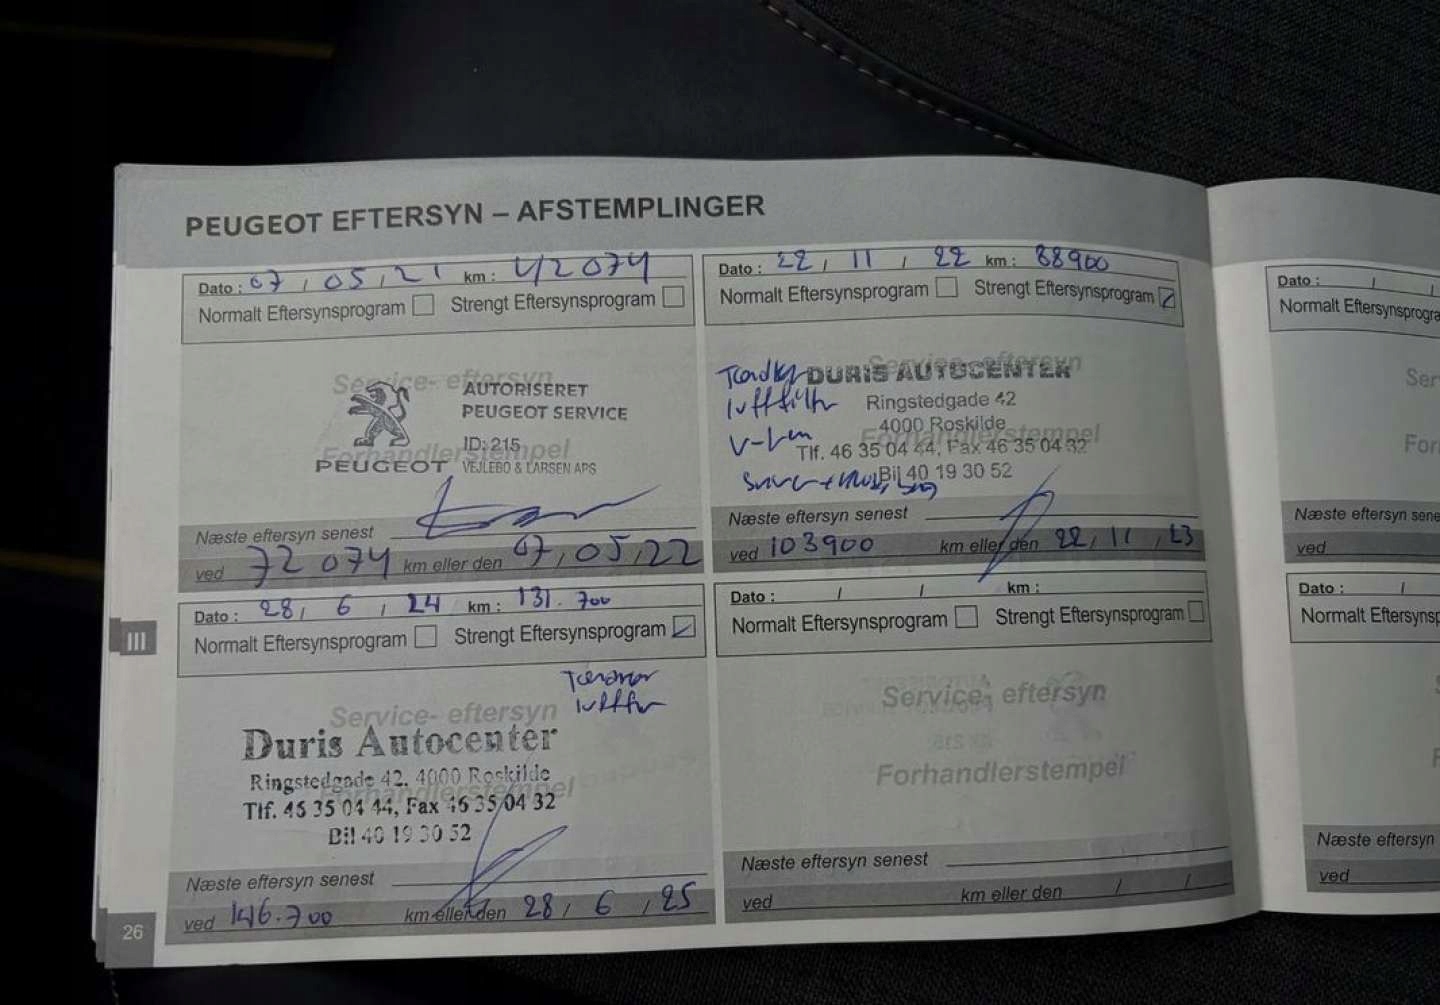 PEUGEOT EFTERSYN – AFSTEMPLINGER
Dato : 07 / 05 / 21 km : 42074
Normalt Eftersynsprogram Strengt Eftersynsprogram
Service- eftersyn
Forhandlerstempel
AUTORISERET
PEUGEOT SERVICE
ID: 215
PEUGEOT VEJLEBO & LARSEN APS
Næste eftersyn senest
ved 72074 km eller den 07 / 05 / 22
Dato : 22 / 11 / 22 km : 88900
Normalt Eftersynsprogram Strengt Eftersynsprogram
Service- eftersyn
Forhandlerstempel
luftfilter
DURIS AUTOCENTER
Ringstedgade 42
4000 Roskilde
Tlf. 46 35 04 44, Fax 46 35 04 32
Bil 40 19 30 52
Næste eftersyn senest
ved 103900 km eller den 22 / 11 / 23
Dato : 28 / 6 / 24 km : 131.700
Normalt Eftersynsprogram Strengt Eftersynsprogram
Service- eftersyn
Forhandlerstempel
Duris Autocenter
Ringstedgade 42, 4000 Roskilde
Tlf. 46 35 04 44, Fax 46 35 04 32
Bil 40 19 30 52
Næste eftersyn senest
ved 146.700 km eller den 28 / 6 / 25
Dato : / / km :
Normalt Eftersynsprogram Strengt Eftersynsprogram
Service- eftersyn
Forhandlerstempel
Næste eftersyn senest
ved km eller den / /
III
26
Dato : / /
Normalt Eftersynsprogra
Ser
For
Næste eftersyn sene
ved
Dato : /
Normalt Eftersynsp
Næste eftersyn
ved